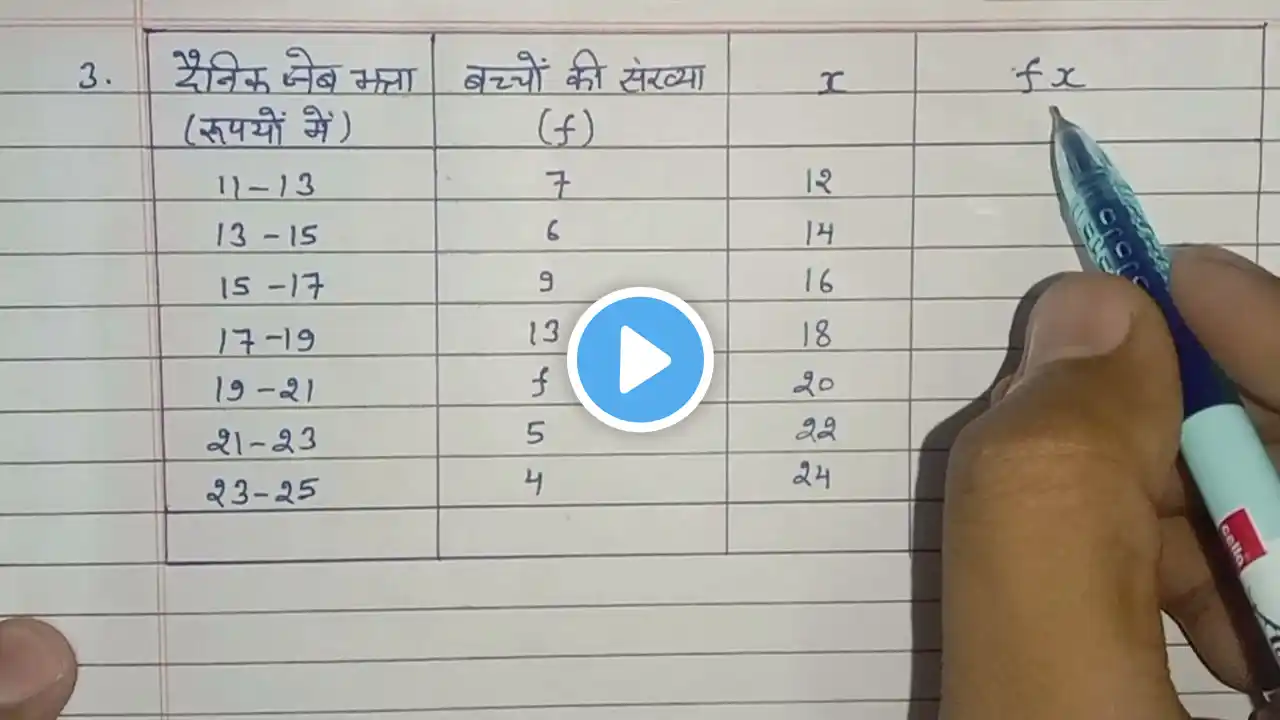 3. दैनिक जेब भत्ता बच्चों की संख्या x fx
(रूपयों में) (f)
11-13 7 12
13-15 6 14
15-17 9 16
17-19 13 18
19-21 f 20
21-23 5 22
23-25 4 24
cello